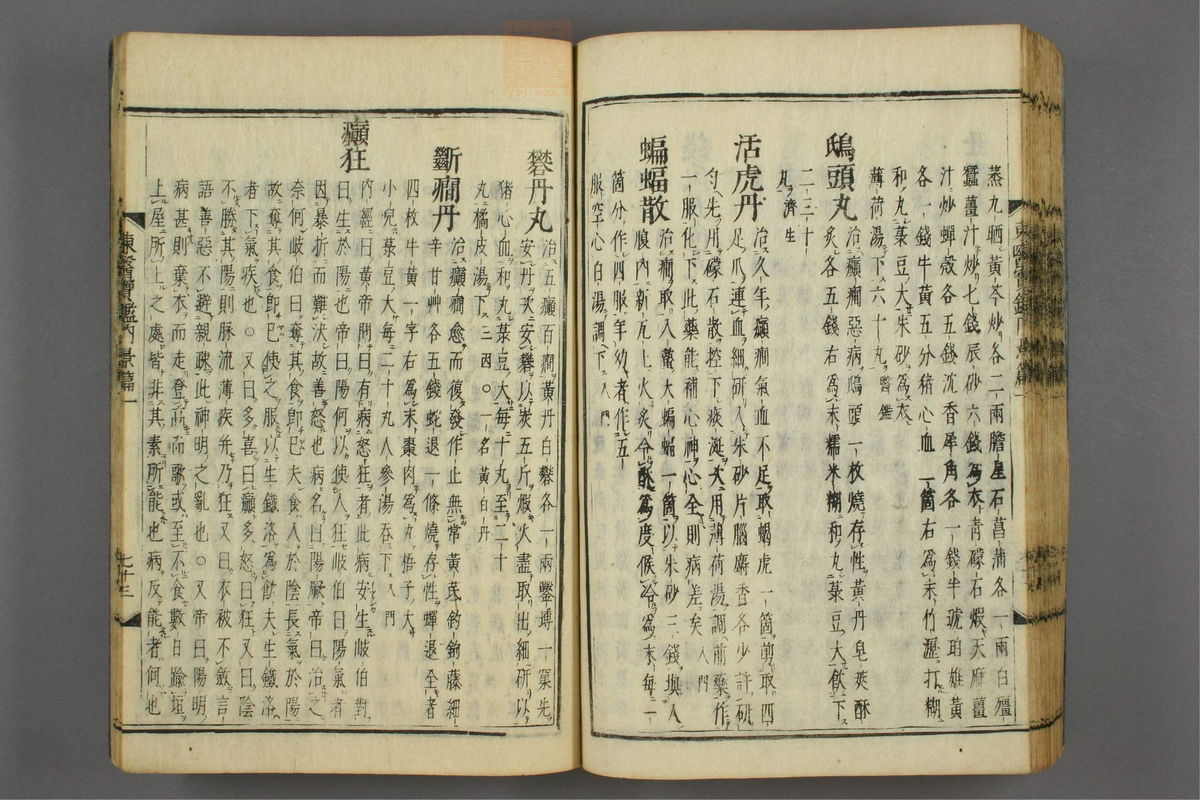 蒸九晒黃芩炒各二兩膽星石菖蒲各一兩白殭
蠶薑汁炒七錢辰砂六錢爲衣靑礞石煆天麻薑
汁炒蟬殼各五錢沈香犀角各一錢半琥珀雄黃
各一錢牛黃五分猪心血一箇右爲末竹瀝打糊
和丸菉豆大朱砂爲衣
薄荷湯下六十丸醫鑑
鴟頭丸治癲癎惡病鴟頭一枚燒存性黃丹皂莢酥
灸各五錢右爲末糯米糊和丸菉豆大飮下
二三十
丸濟生
活虎丹治久年癲癎氣血不足取蝎虎一箇剪取四
足爪連血細硏入朱砂片腦麝香各少許硏
勻先用礞石散控下痰涎次用薄荷湯調前藥作
一服化下此藥能補心神心全則病差矣入門
蝙蝠散治癎取入蟄大蝙蝠一箇以朱砂三錢塡入
腹內新瓦上火灸令酥爲度候冷爲末每一
箇分作四服年幼者作五
服空心白湯調下入門
礬丹丸治五癲百癎黃丹白礬各一兩鑿塼一窠先
安丹次安礬以炭五斤煆火盡取出細硏以
猪心血和丸菉豆大每十丸至二十
丸橘皮湯下三四〇一名黃白丹
斷癎丹治癲癎愈而復發作止無常黃芪鉤藤細
辛甘艸各五錢蛇退一條燒存性蟬退全者
四枚牛黃一字右爲末棗肉爲丸梧子大
小兒菉豆大每二十丸人參湯呑下入門
癲狂內經曰黃帝問曰有病怒狂者此病安生岐伯對
曰生於陽也帝曰陽何以使人狂岐伯曰陽氣者
因暴折而難決故善怒也病名曰陽厥帝曰治之
奈何岐伯曰奪其食卽已夫食入於陰長氣於陽
故奪其食卽已使之服以生鐵洛爲飮夫生鐵洛
者下氣疾也〇又曰多喜曰癲多怒曰狂〇又曰陰
不勝其陽則脉流薄疾幷乃狂又曰衣被不斂言
語善惡不避親疎此神明之亂也〇又帝曰陽明
病甚則棄衣而走登高而歌或至不食數日踰垣
上屋所上之處皆非其素所能也病反能者何也
東醫寶鑑內景篇一
七十三